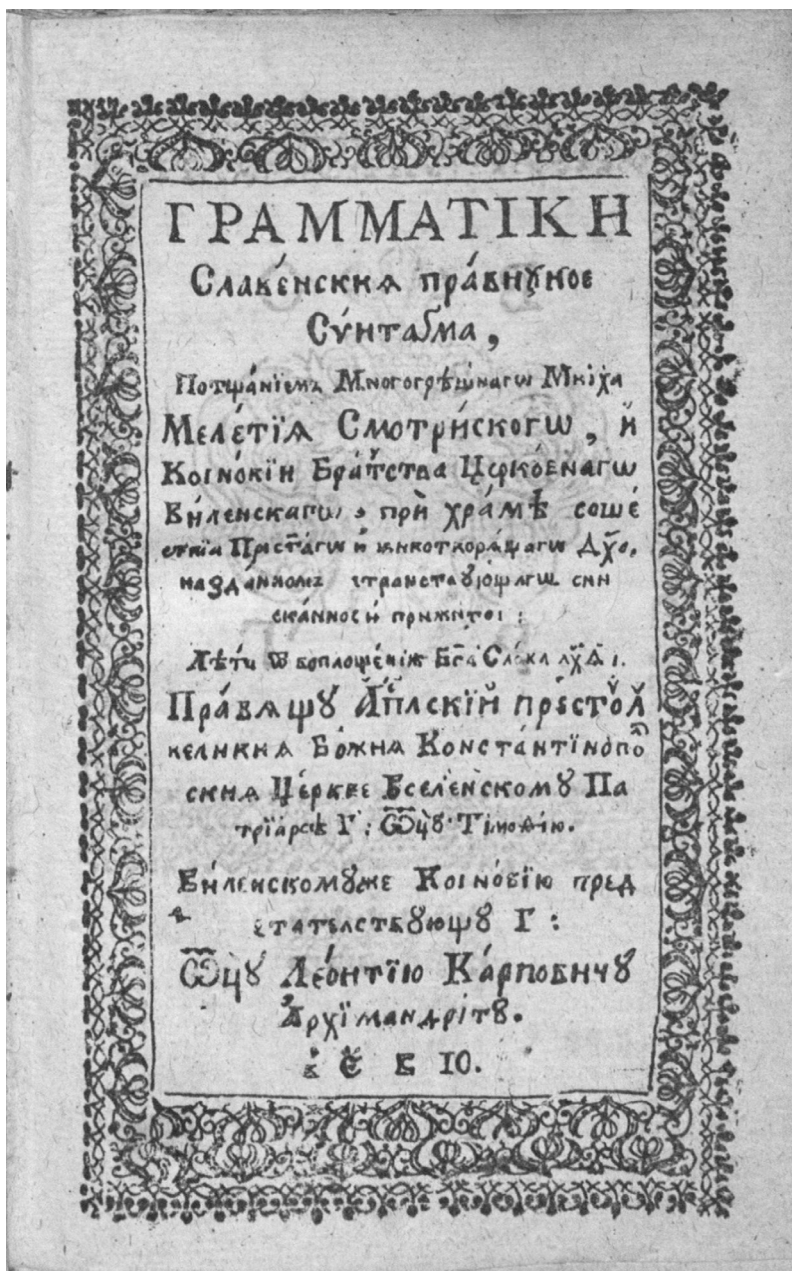 ГРАММАТІКИ
Славе́нскиѧ пра́вилное
Сѵ́нтаґма,
Потщáнїемъ Многогрѣ́шнагѡ Мни́ха
Меле́тїѧ Смотри́скогѡ, и҆
Коіно́вїи Бра́тства Цр҃ко́внагѡ
Ви́ленскагѡ, прѝ хра́мѣ соше́
ствїѧ Прест҃а́гѡ и҆ животворѧ́щагѡ Дх҃а,
назда́нномъ странствꙋ́ющагѡ сни
ска́нное и҆ прижито́е:
Лѣ́та ѿ воплоще́нїѧ Бг҃а Сло́ва ҂ахѳі.
Пра́вѧщꙋ А҆пⷭ҇лскїй престо́лъ
великиѧ Бо́жиѧ Конста́нтїнопо́л
скиѧ Це́ркве Вселе́нскомꙋ Па
трїа́рсѣ Г: Ѿц҃ꙋ Тімоѳе́ю.
Ви́ленскомꙋже Коіно́вїю пред
стателствꙋющꙋ Г:
Ѿц҃ꙋ Лео́нтїю Ка́рповичꙋ
А҆рхїмандрі́тꙋ.
в̾ Е҆ В Ю.